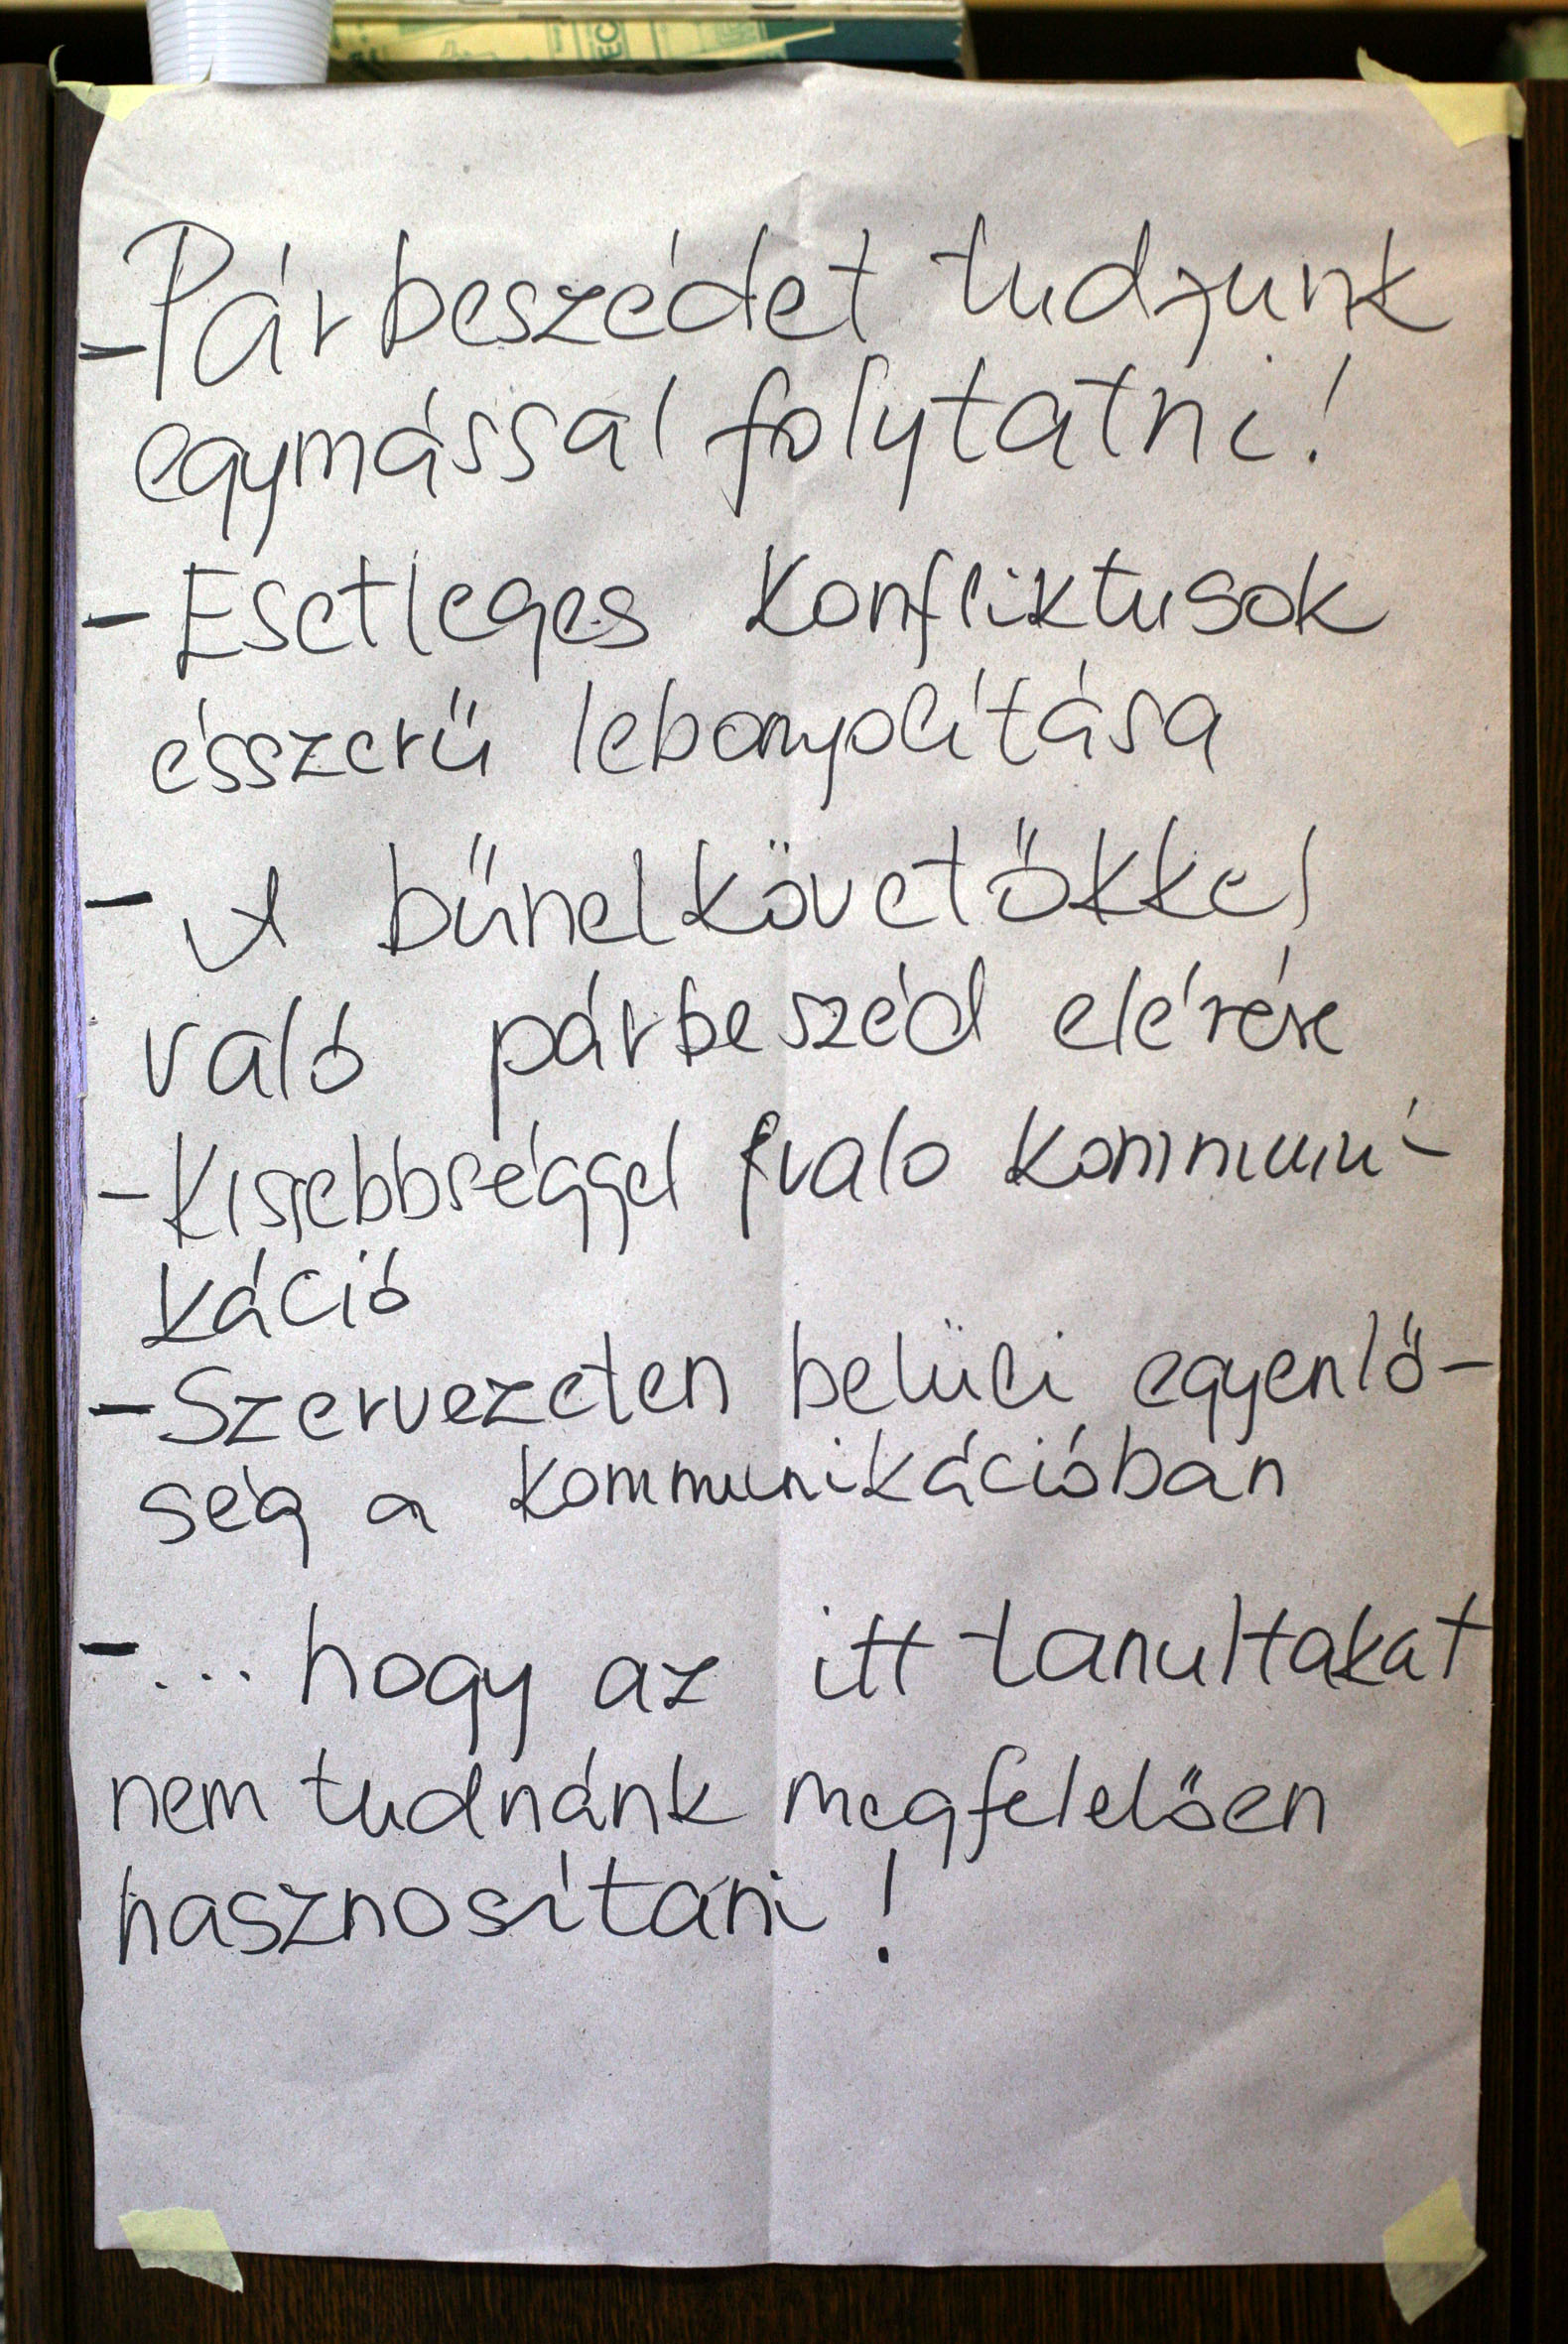 - Párbeszédet tudjunk
egymással folytatni!
- Esetleges konfliktusok
ésszerű lebonyolítása
- A bűnelkövetőkkel
való párbeszéd elérése
- Kissebbséggel való kommuni-
káció
- Szervezeten belüli egyenlő-
ség a kommunikációban
- ... hogy az itt tanultakat
nem tudnánk megfelelően
hasznosítani!